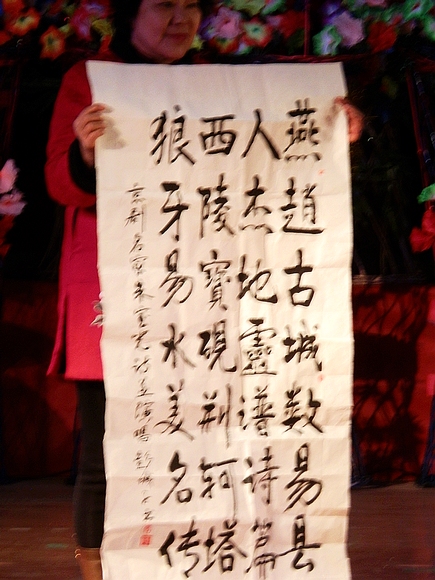 燕趙古城数易县
人杰地靈谱诗篇
西陵寶硯荆轲塔
狼牙易水美名传
京剧名家朱宝亮